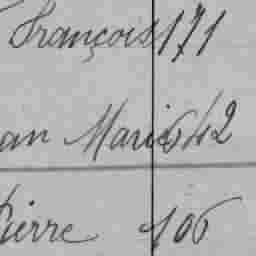 François 171
an Marie 642
Pierre 106